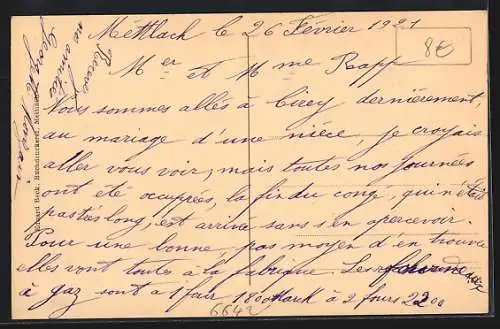 Mettlach le 26 Février 1921
8€
Mer et Mme Rapp
Nous sommes allés à Cirey dernièrement,
au mariage d'une nièce, je croyais
aller vous voir, mais toutes nos journées
ont été occupées, la fin du congé, qui n'était
pas très long, est arrivé sans s'en apercevoir.
Pour une bonne, pas moyen d'en trouver
elles vont toutes à la fabrique. Les
à gaz sont à 1 four 1800 Mark à 2 fours 2200
6642
Eduard Beck, Buchdruckerei, Mettlach